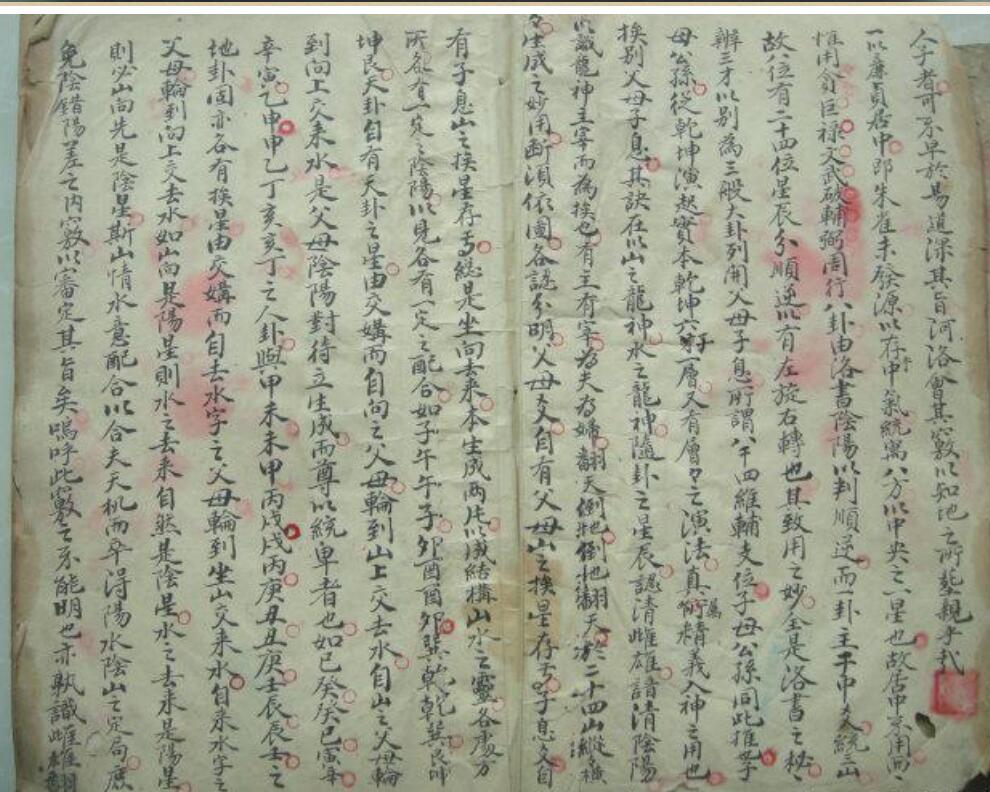 人子者可不卑於易道深其旨河洛會其竅以知地之所塟親乎哉
一以廉貞居中即朱雀未發源以存中氣統寓八方以中央之一星也故居中另用而
惟用貪巨祿文武破輔弼周行八卦由洛書陰陽以判順逆而一卦主乎中爻統三山
故八位有二十四位星辰分順逆以有左旋右轉也其致用之妙全是洛書之秘
辨三才以別為三般大卦列開父母子息所謂八干四維輔夫位子母公孫同此推也子
母公孫從乾坤演起實本乾坤六子一層又有層層之演法真屬精義入神之用也
挨別父母子息其訣在以山之龍神水之龍神隨卦之星辰認清雌雄請清陰陽
以識龍神主宰而為挨也有主有宰為夫為婦翻天倒地倒地翻天於二十四山縱橫
生成之妙用斷須依圖各認分明父母爻自有父母山之挨星存焉子息爻自
有子息山之挨星存焉總是坐向去來本生成兩片以成結構山水之靈各處方
所各有一定之陰陽以見各有一定之配合如子午午子夘酉酉夘巽乾乾巽艮坤
坤艮天卦自有天卦之星由交媾而自向之父母輪到山上交去水自山之父母輪
到向上交來水是父母陰陽對待立生成而尊以統卑者也如巳癸癸巳寅辛
辛寅乙申申乙丁亥亥丁之人卦與甲未未甲丙戌戌丙庚丑丑庚壬辰辰壬之
地卦固亦各有挨星由交媾而自去水字之父母輪到坐山交來水自來水字之
父母輪到向上交去水如山向是陽星則水之去來自然是陰星水之去來是陽星
則必山向先是陰星斯山情水意配合以合夫天机而卒得陽水陰山之定局庶
免陰錯陽差之內竅以審定其旨矣嗚呼此竅之不能明也亦孰識雌雄